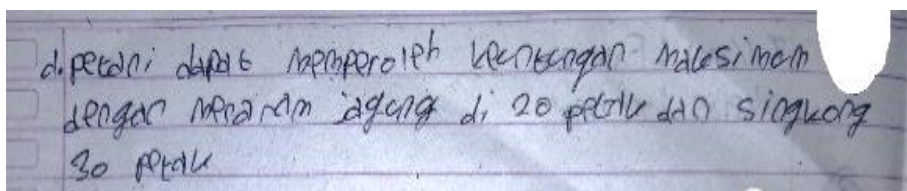 d. petani dapat memperoleh keuntungan maksimum
dengan menanam jagung di 20 petak dan singkong
30 petak